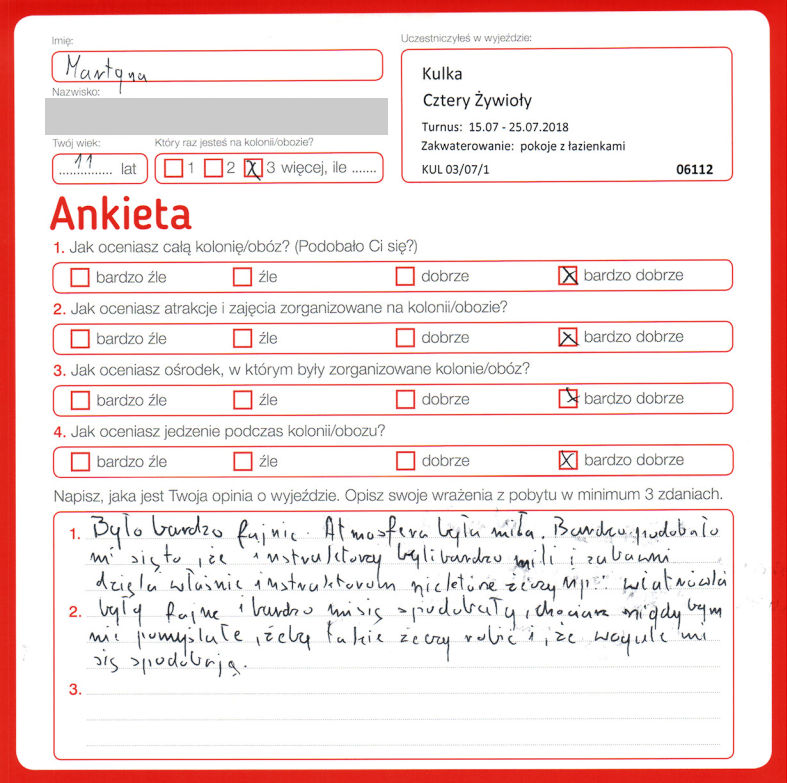 Imię:
Uczestniczyłeś w wyjeździe:
Martyna
Kulka
Nazwisko:
Cztery Żywioły
Turnus: 15.07 - 25.07.2018
Twój wiek:
Który raz jesteś na kolonii/obozie?
Zakwaterowanie: pokoje z łazienkami
11 lat
1 2 3 więcej, ile .......
KUL 03/07/1 06112
Ankieta
1. Jak oceniasz całą kolonię/obóz? (Podobało Ci się?)
bardzo źle źle dobrze bardzo dobrze
2. Jak oceniasz atrakcje i zajęcia zorganizowane na kolonii/obozie?
bardzo źle źle dobrze bardzo dobrze
3. Jak oceniasz ośrodek, w którym były zorganizowane kolonie/obóz?
bardzo źle źle dobrze bardzo dobrze
4. Jak oceniasz jedzenie podczas kolonii/obozu?
bardzo źle źle dobrze bardzo dobrze
Napisz, jaka jest Twoja opinia o wyjeździe. Opisz swoje wrażenia z pobytu w minimum 3 zdaniach.
1. Było bardzo fajnie. Atmosfera była miła. Bardzo podobało
mi się to, że instruktorzy byli bardzo mili i zabawni
dzięki właśnie instruktorom niektóre rzeczy np: wiatrówki
2. były fajne i bardzo mi się spodobały, chociaż nigdy bym
nie pomyślała, żeby takie rzeczy robić i, że wogule mi
się spodobają.
3.